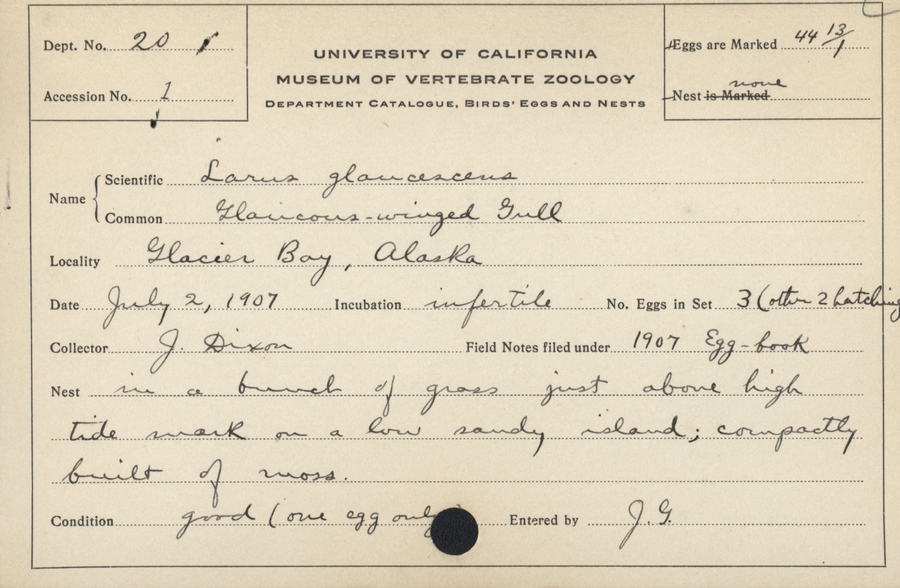 Dept. No. 20
Accession No. 1
UNIVERSITY OF CALIFORNIA
MUSEUM OF VERTEBRATE ZOOLOGY
DEPARTMENT CATALOGUE, BIRDS' EGGS AND NESTS
Eggs are Marked 44 13/1
none
Nest is Marked
Name
Scientific Larus glaucescens
Common Glaucous-winged Gull
Locality Glacier Bay, Alaska
Date July 2, 1907 Incubation infertile No. Eggs in Set 3 (other 2 hatching
Collector J. Dixon Field Notes filed under 1907 Egg-book
Nest in a bunch of grass just above high
tide mark on a low sandy island; compactly
built of moss.
Condition good (one egg only) Entered by J. G.